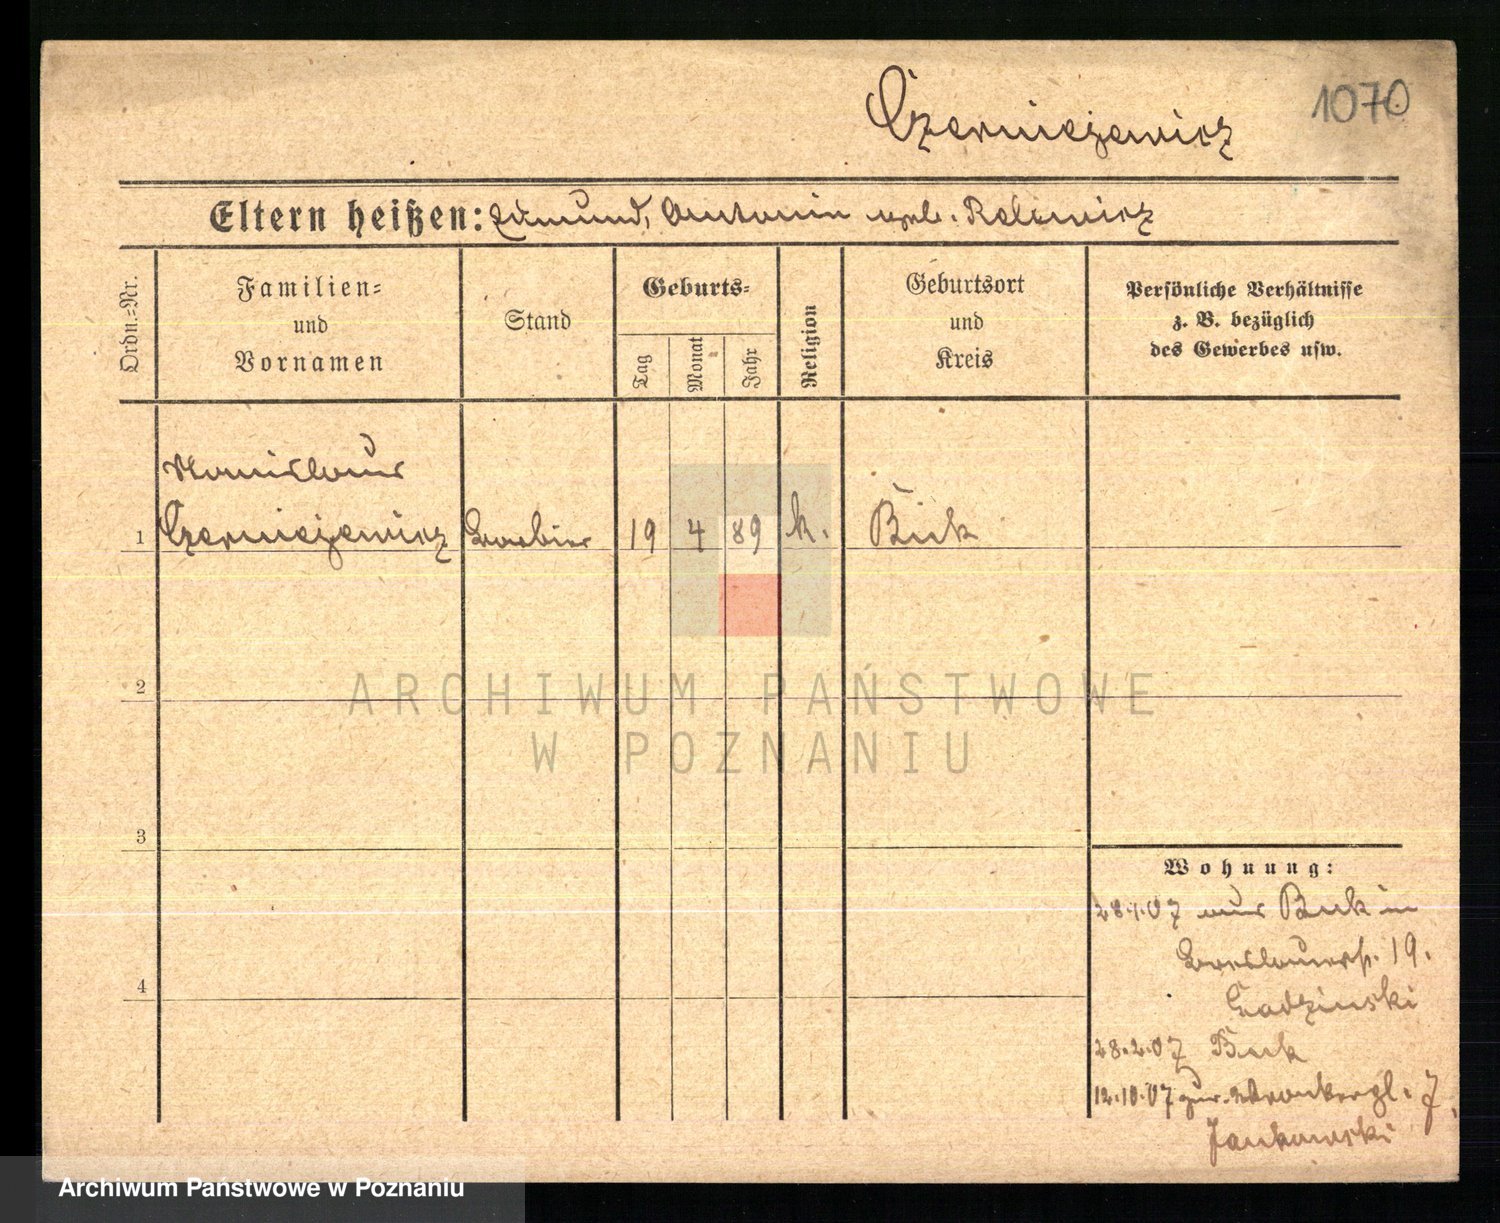 1070
Czerniejewicz
Eltern heißen: Edmund, Antonin geb.
Ordn.-Nr.
Familien-
und
Vornamen
Stand
Geburts-
Tag
Monat
Jahr
Religion
Geburtsort
und
Kreis
Persönliche Verhältnisse
z. B. bezüglich
des Gewerbes usw.
Stanislaus
1 Czerniejewicz Barbier 19 4 89 k. Buk
2
3
4
Wohnung:
aus Buk in
Breslauerst. 19.
Gadzinski
28.2.07 Buk
12.10.07 zur. Wronkerpl. 7.
Jankowski
ARCHIWUM PAŃSTWOWE
W POZNANIU
Archiwum Państwowe w Poznaniu